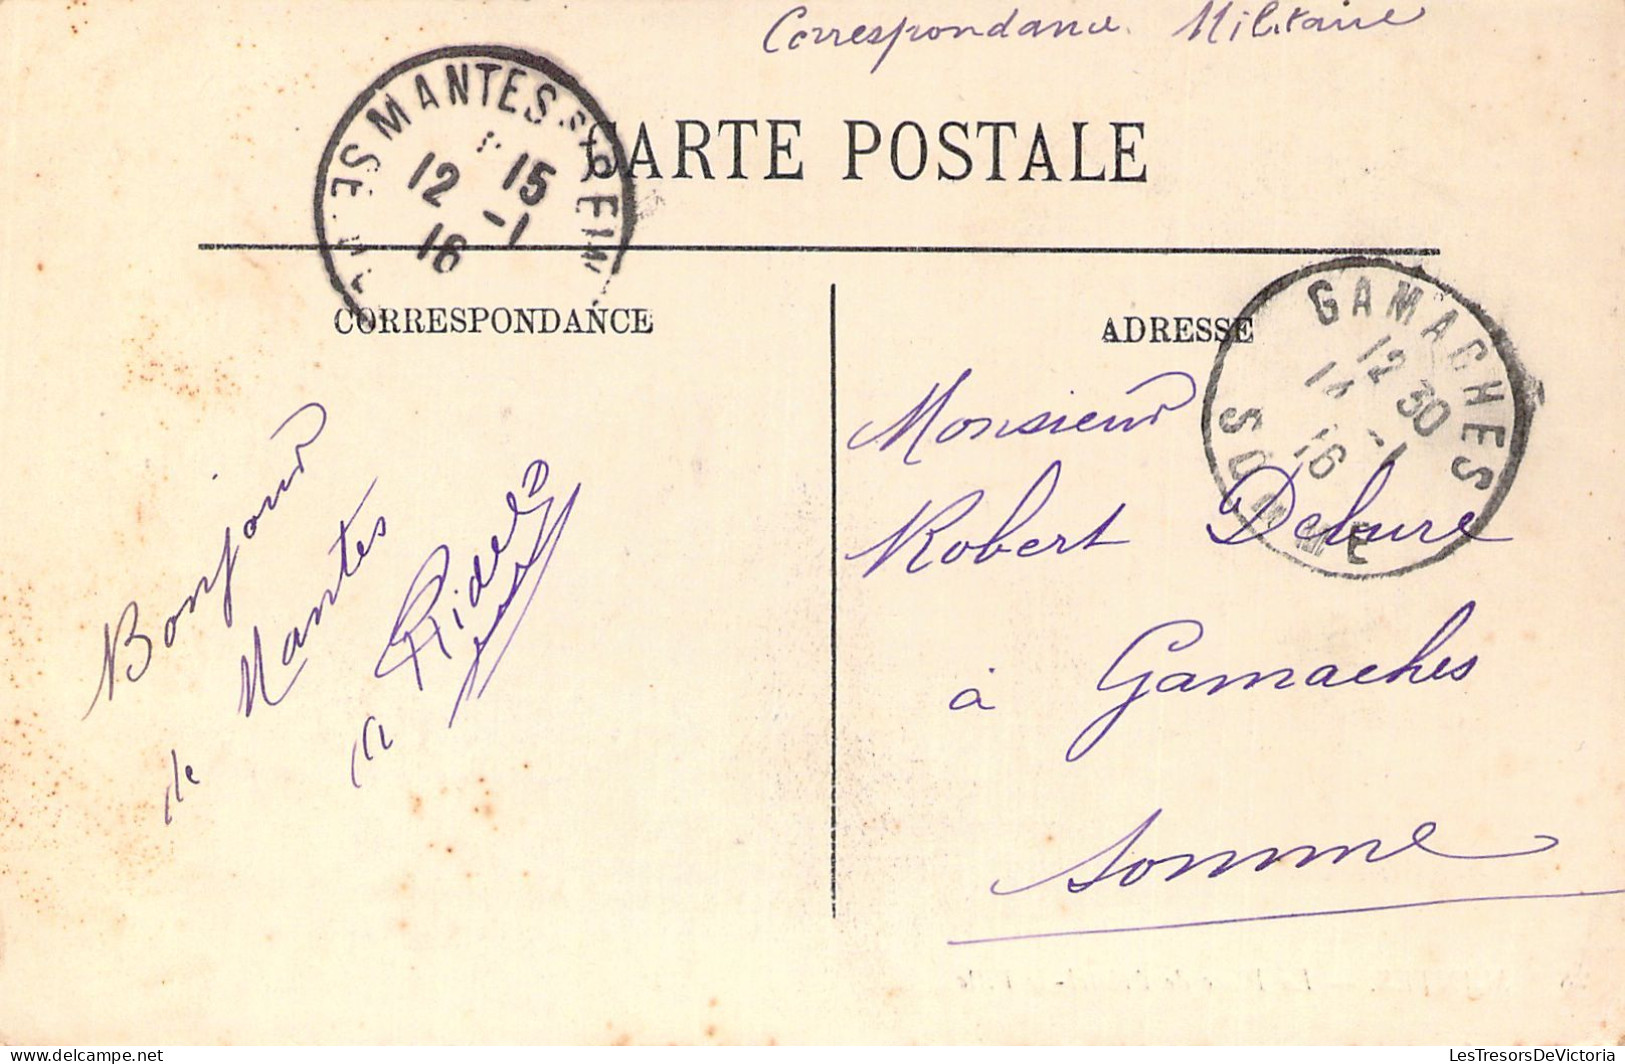 Correspondance Militaire
CARTE POSTALE
MANTES S/SEINE
12 15
16 -1
CORRESPONDANCE
ADRESSE
GAMACHES
12 30
14 -1
16
SOMME
Bonjour
de Mantes
Ridel
Monsieur
Robert
à Gamaches
Somme
LesTresorsDeVictoria
delcampe.net